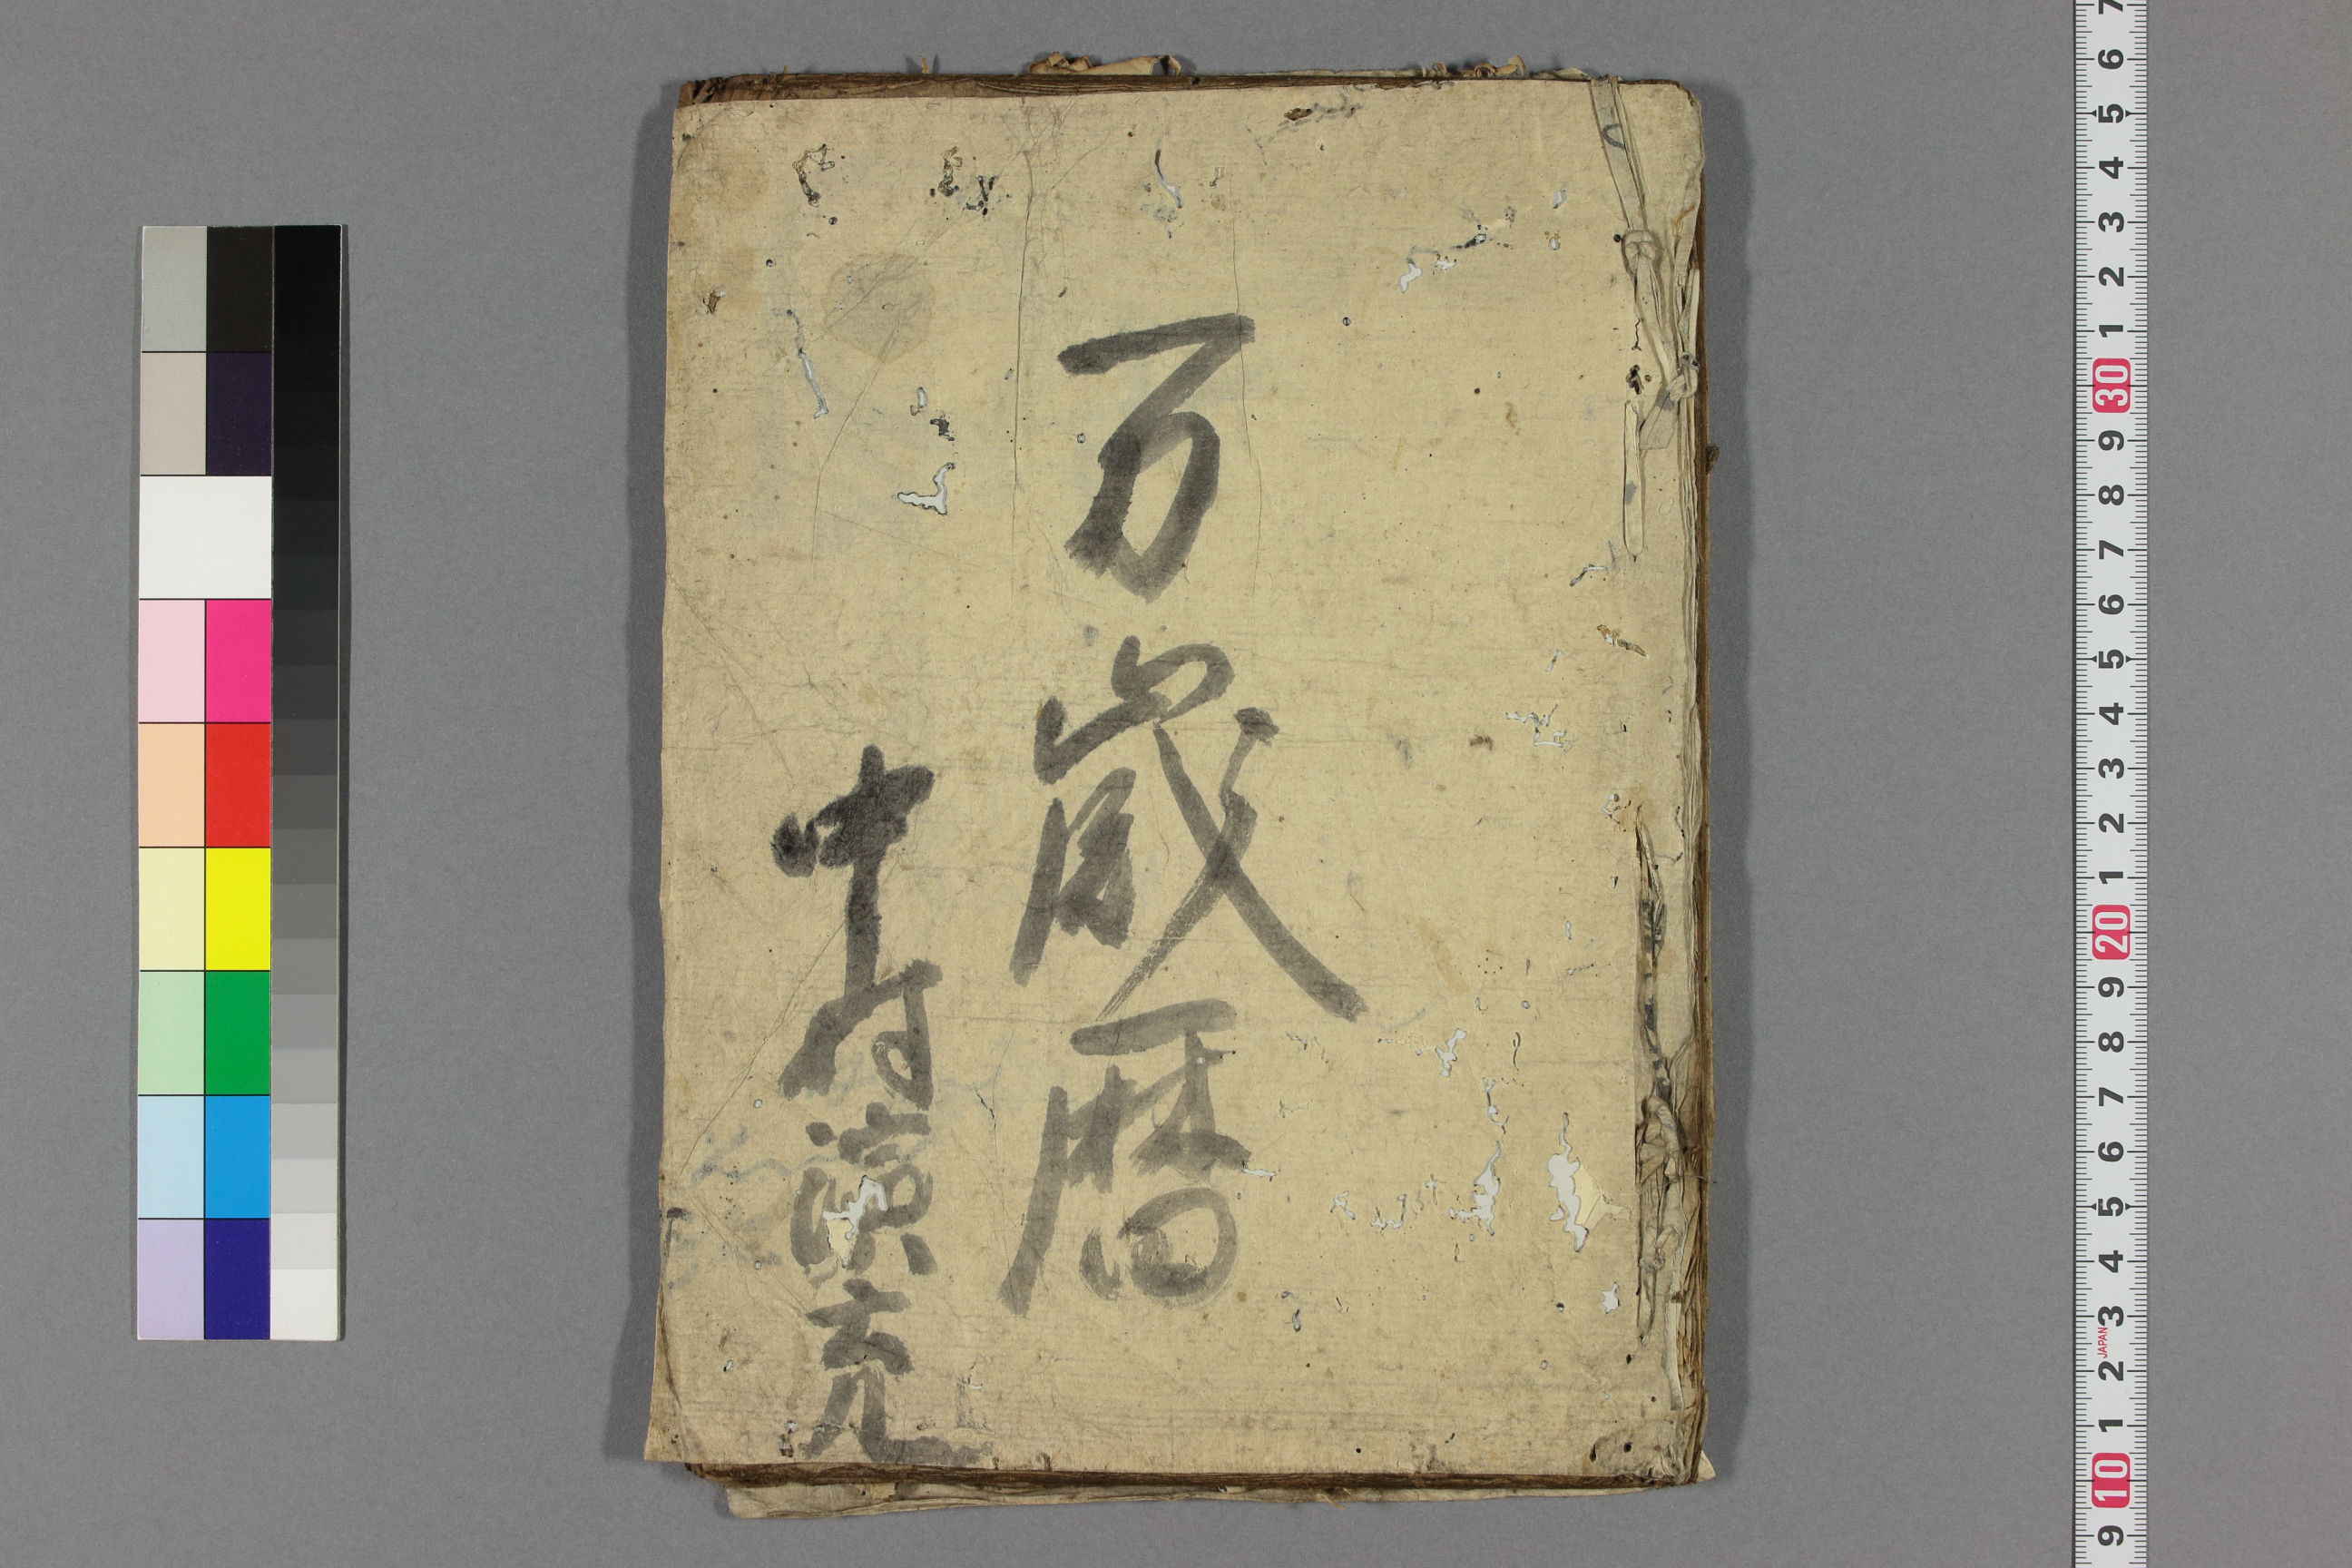 万歳暦
中村演充
7
6
5
4
3
2
1
30
9
8
7
6
5
4
3
2
1
20
9
8
7
6
5
4
3
JAPAN
2
1
10
9